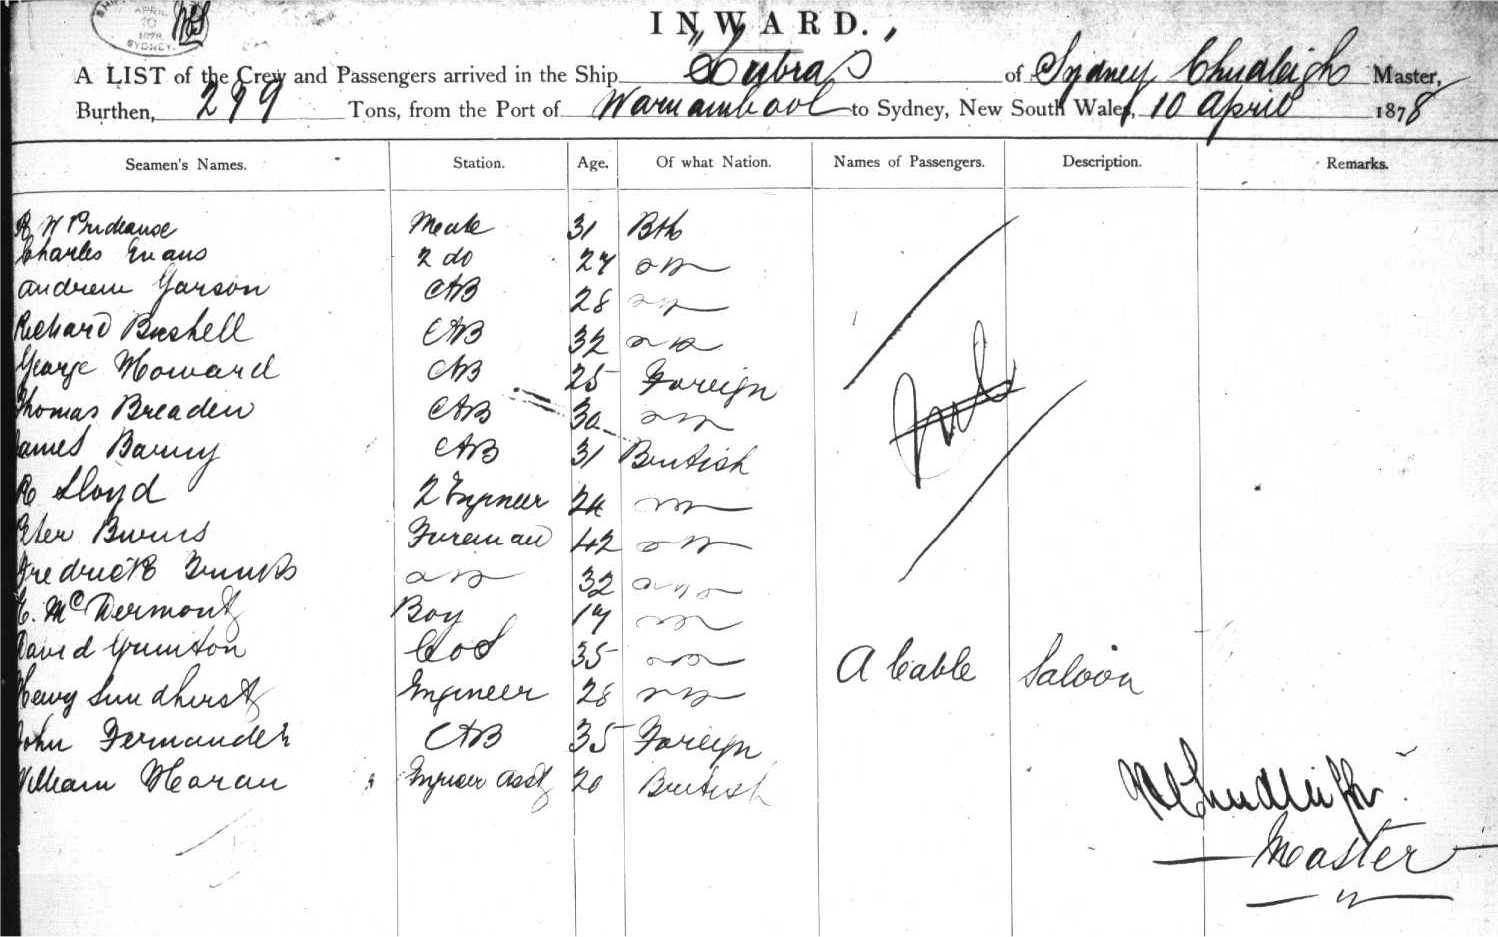 APRIL
10
1878
SYDNEY
INWARD.
A LIST of the Crew and Passengers arrived in the Ship "Lubra" of Sydney Chudleigh Master,
Burthen, 279 Tons, from the Port of Warnambool to Sydney, New South Wales, 10 April 1878
Seamen's Names. Station. Age. Of what Nation. Names of Passengers. Description. Remarks.
W Prideause Mate 31 Bth
Charles Evans 2 do 27
Andrew Garson AB 28
Richard Bushell AB 32
George Howard AB 25 Foreign
Thomas Breaden AB 30
James Barry AB 31 British
R Lloyd 2 Engineer 24
Peter Burns Fireman 42
Fredrick 32
McDermont Boy 17
David Grunton Cook 35
A Cable Saloon
Henry Sundhurst Engineer 28
John Fernandez AB 35 Foreign
William Horan Engineer Asst 20 British
W Chudleigh
Master